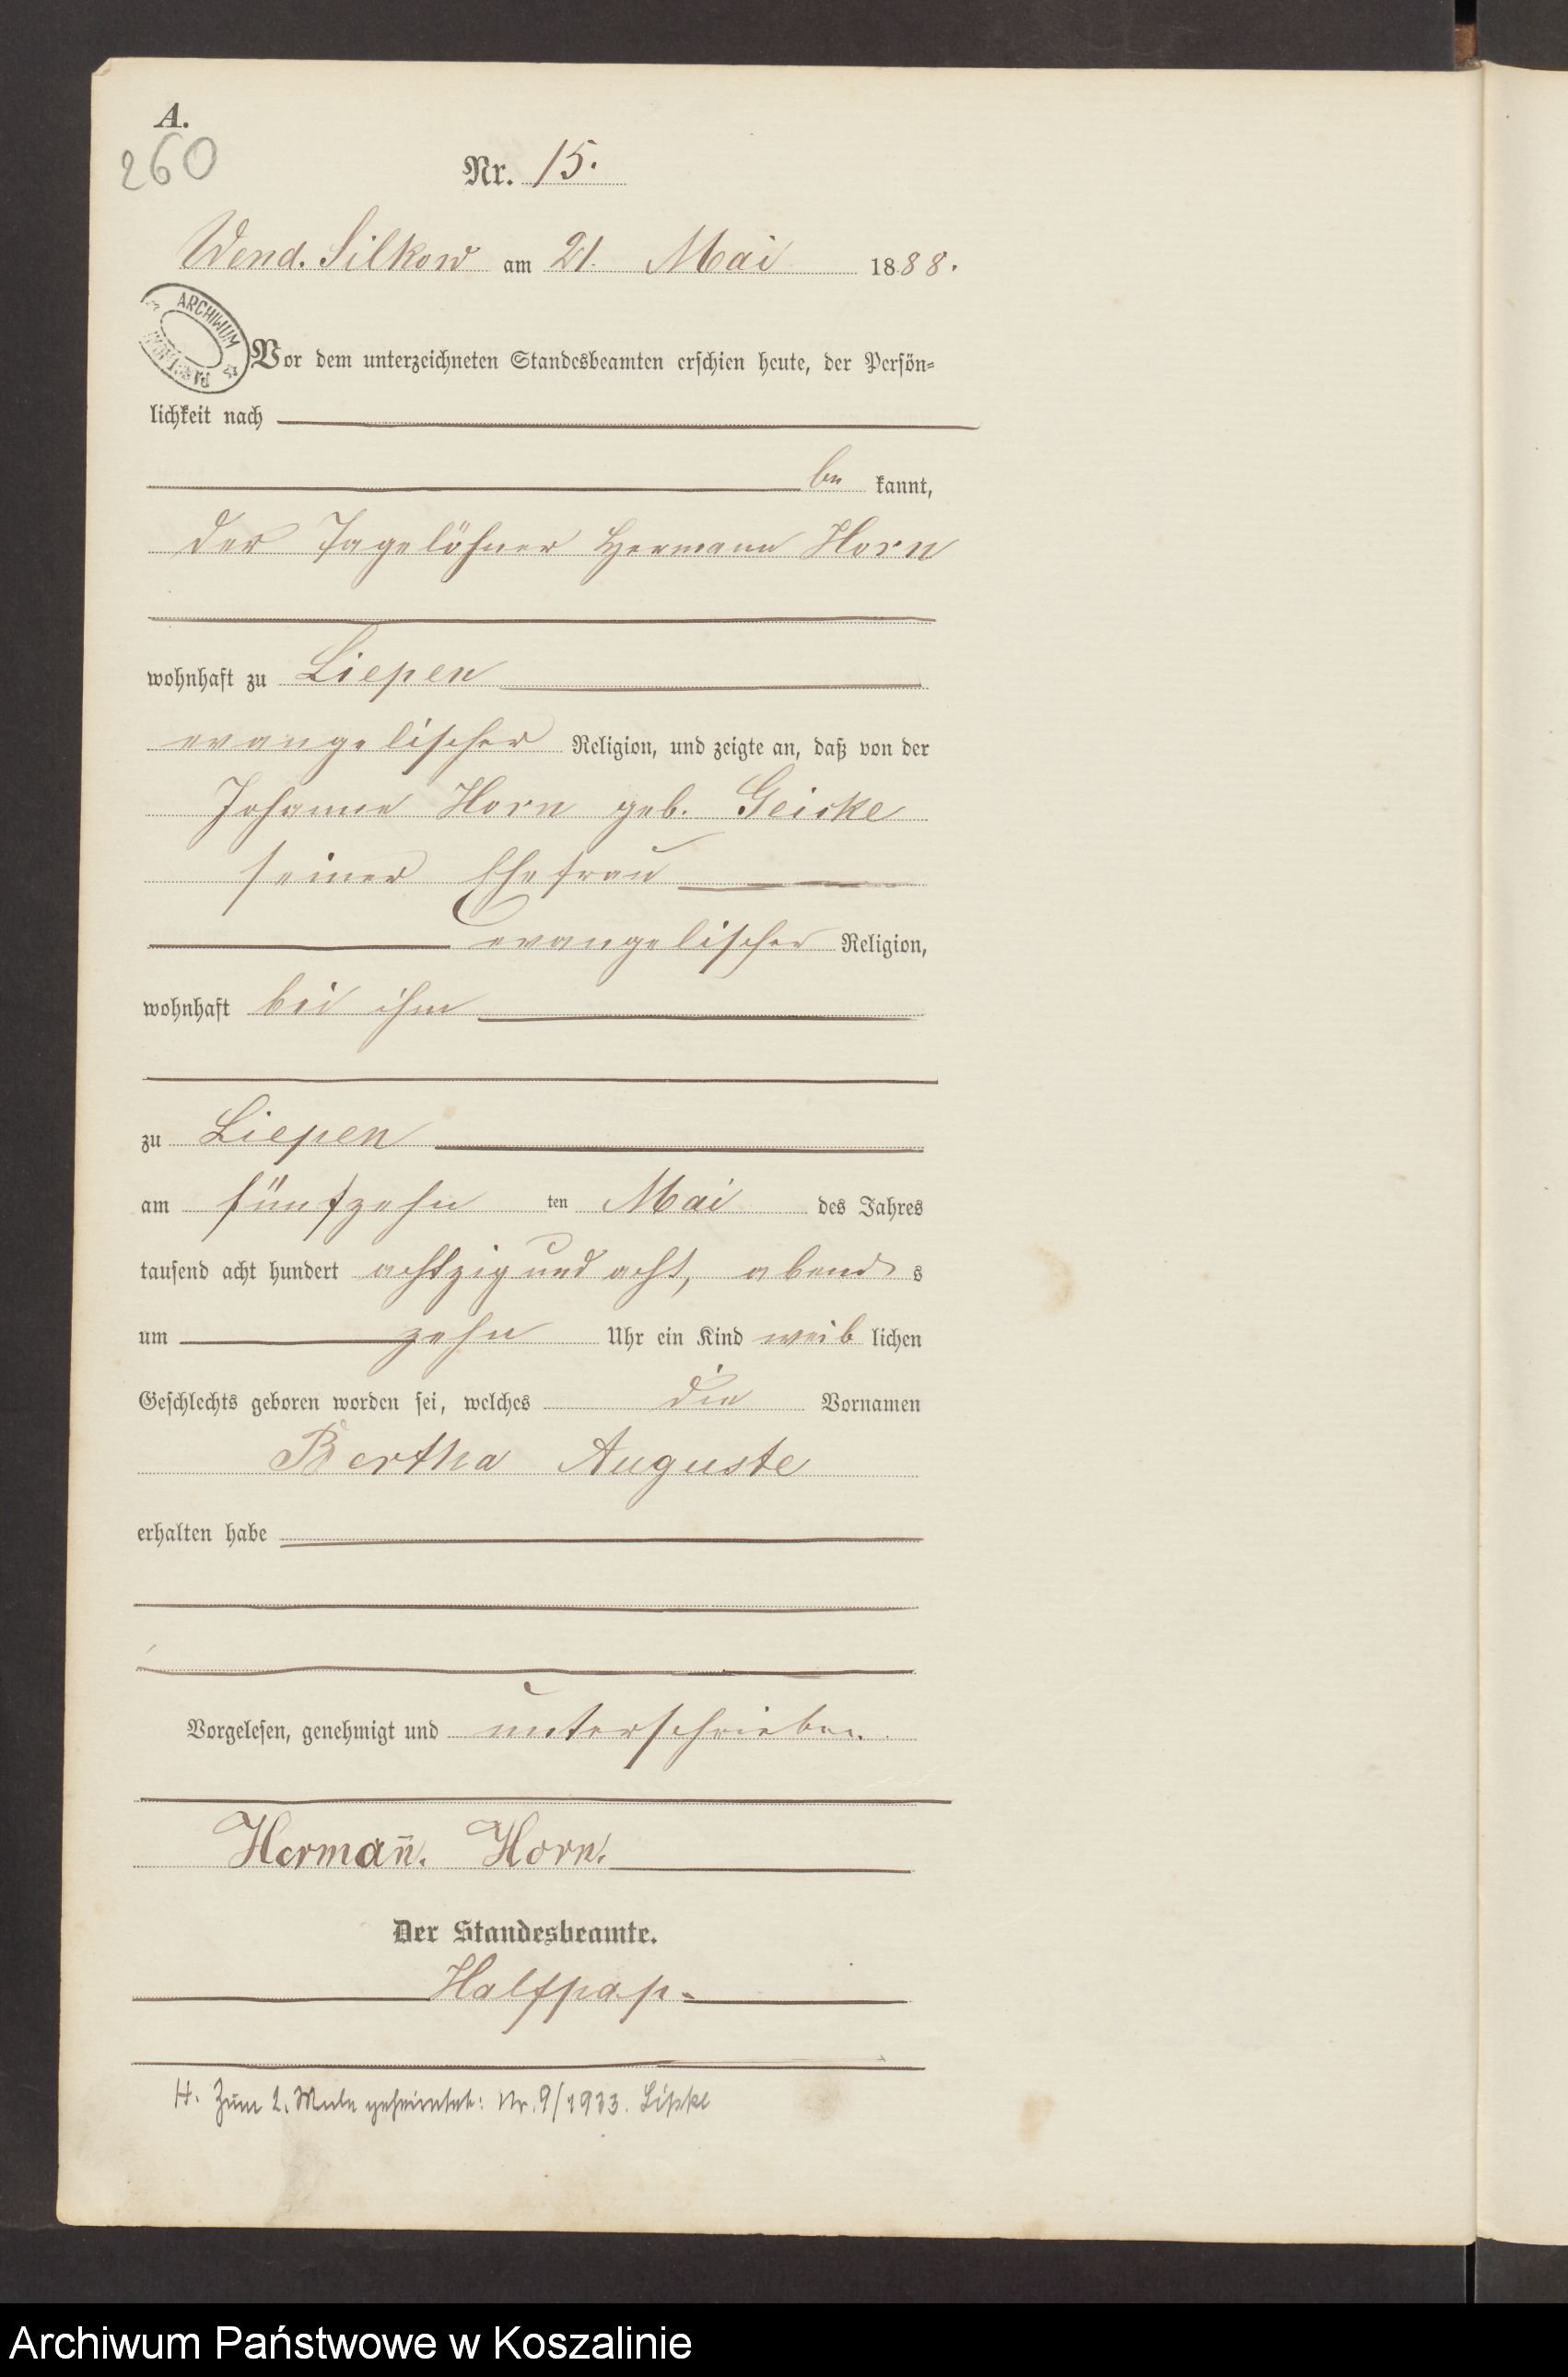 A.
260
Nr. 15.
Wend. Silkow am 21. Mai 1888.
ARCHIWUM
Vor dem unterzeichneten Standesbeamten erschien heute, der Persön-
lichkeit nach
be kannt,
der Tagelöhner Hermann Horn
wohnhaft zu Liepen
evangelischer Religion, und zeigte an, daß von der
Johanne Horn geb. Geicke
seiner Ehefrau
evangelischer Religion,
wohnhaft bei ihm
zu Liepen
am fünfzehn ten Mai des Jahres
tausend acht hundert achtzig und acht, abends s
um zehn Uhr ein Kind weib lichen
Geschlechts geboren worden sei, welches die Vornamen
Bertha Auguste
erhalten habe
Vorgelesen, genehmigt und unterschrieben.
Hermañ. Horn.
Der Standesbeamte.
Halfpap.
H. Zum 2. Male geheiratet: Nr. 9/1933. Lipke
Archiwum Państwowe w Koszalinie